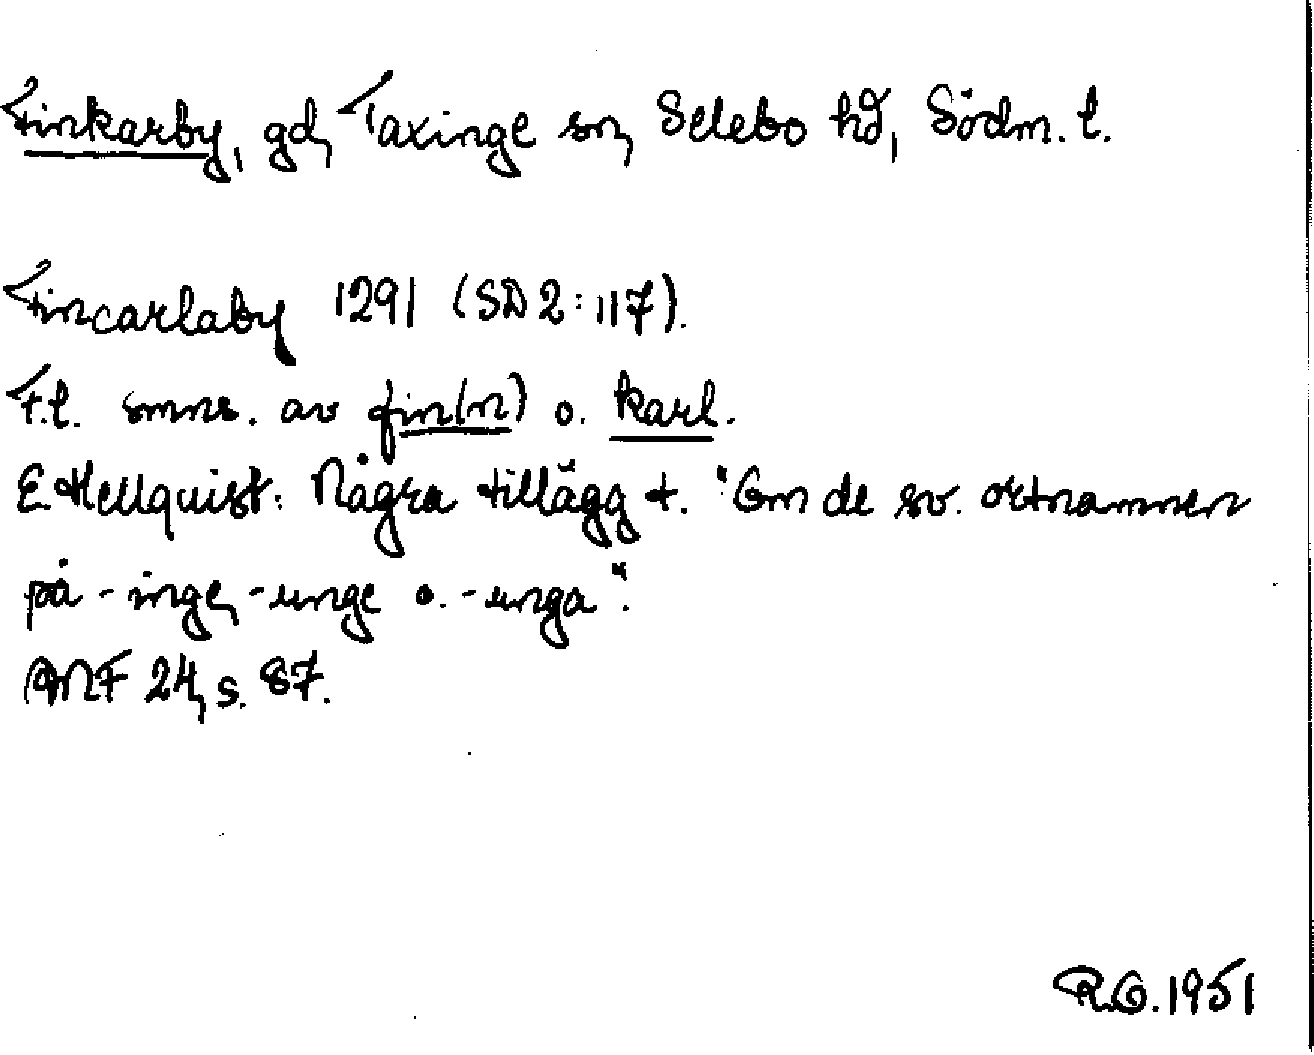 Finkarby, gd, Taxinge sn, Selebo hd, Södm. l.
Fincarlaby 1291 (SD 2:117).
F.l. smns. av fin(n) o. karl.
E. Hellquist: Några tillägg t. "Om de sv. ortnamnen
på -inge, -unge o. -unga".
ANF 24, s. 87.
R.O. 1951